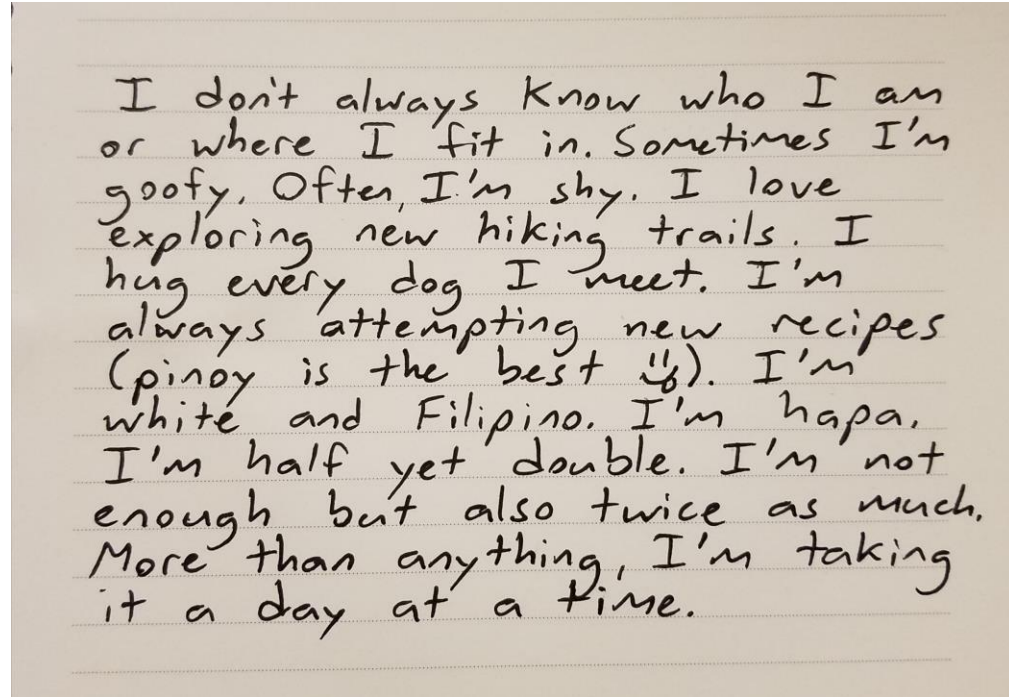 I don't always know who I am
or where I fit in. Sometimes I'm
goofy. Often, I'm shy. I love
exploring new hiking trails. I
hug every dog I meet. I'm
always attempting new recipes
(pinoy is the best). I'm
white and Filipino. I'm hapa.
I'm half yet double. I'm not
enough but also twice as much.
More than anything, I'm taking
it a day at a time.